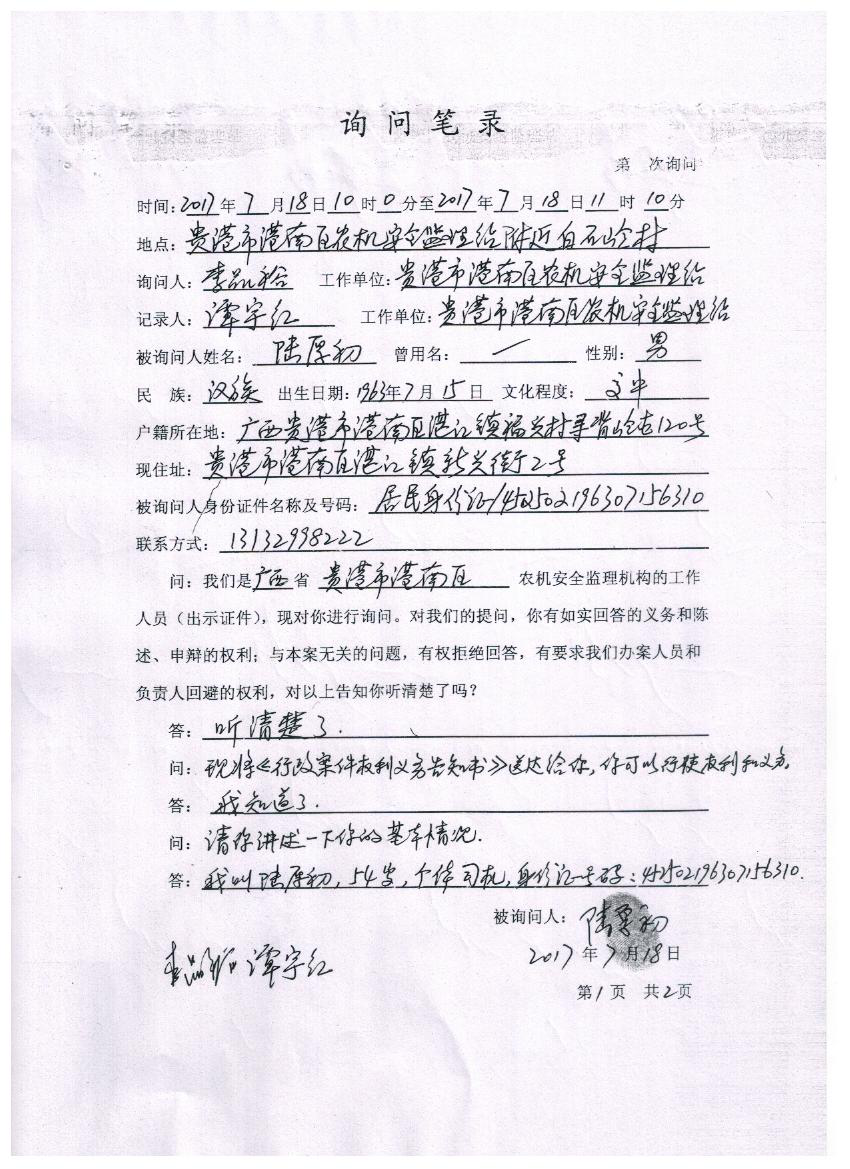 询问笔录
第 次询问
时间:2017年7月18日10时0分至2017年7月18日11时10分
地点:贵港市港南区农机安全监理站附近白石岭村
询问人:李品 工作单位:贵港市港南区农机安全监理站
记录人:谭宇红 工作单位:贵港市港南区农机安全监理站
被询问人姓名:陆厚初 曾用名:/ 性别:男
民 族:汉族 出生日期:1963年7月15日 文化程度:
户籍所在地:广西贵港市港南区湛江镇福兴村 背岭屯120号
现住址:贵港市港南区湛江镇新兴街2号
被询问人身份证件名称及号码:居民身份证/452502196307156310
联系方式:13132998222
问:我们是广西省 贵港市港南区 农机安全监理机构的工作
人员(出示证件),现对你进行询问。对我们的提问,你有如实回答的义务和陈
述、申辩的权利;与本案无关的问题,有权拒绝回答,有要求我们办案人员和
负责人回避的权利,对以上告知你听清楚了吗?
答:听清楚了.
问:现将《行政案件权利义务告知书》送达给你,你可以行使权利和义务.
答:我知道了.
问:请你讲述一下你的基本情况.
答:我叫陆厚初,54岁,个体司机,身份证号码:452502196307156310.
被询问人:陆厚初
2017年7月18日
李品 谭宇红
第1页 共2页